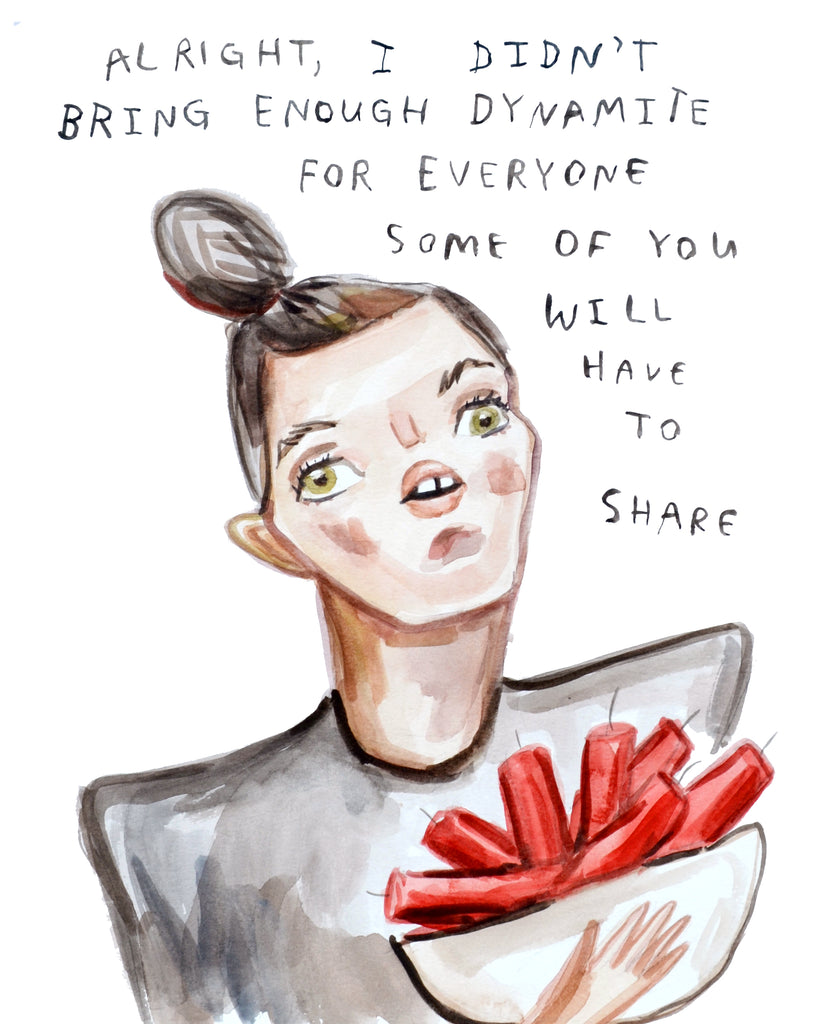 ALRIGHT, I DIDN'T
BRING ENOUGH DYNAMITE
FOR EVERYONE
SOME OF YOU
WILL
HAVE
TO
SHARE